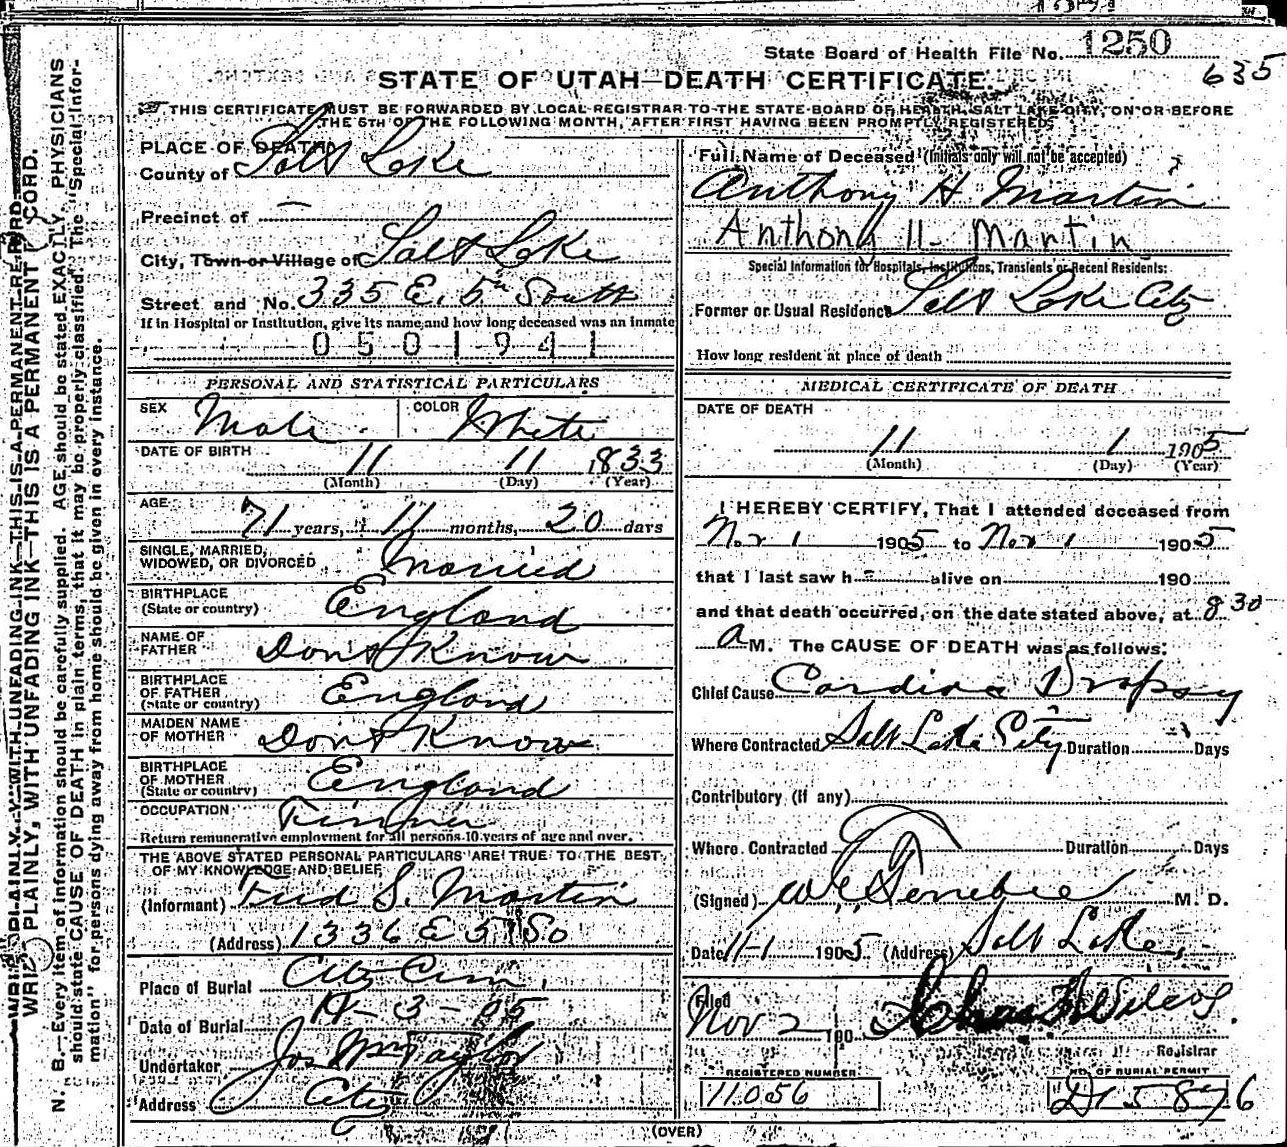 State Board of Health File No. 1250
635
STATE OF UTAH—DEATH CERTIFICATE.
THIS CERTIFICATE MUST BE FORWARDED BY LOCAL REGISTRAR TO THE STATE BOARD OF HEALTH, SALT LAKE CITY, ON OR BEFORE
THE 5TH OF THE FOLLOWING MONTH, AFTER FIRST HAVING BEEN PROMPTLY REGISTERED
PLACE OF DEATH
County of Salt Lake
Precinct of —
City, Town or Village of Salt Lake
Street and No. 335 E. 5th South
If in Hospital or Institution, give its name and how long deceased was an inmate
0501941
PERSONAL AND STATISTICAL PARTICULARS
SEX Male COLOR White
DATE OF BIRTH 11 11 1833
(Month) (Day) (Year)
AGE 71 years, 11 months, 20 days
SINGLE, MARRIED,
WIDOWED, OR DIVORCED Married
BIRTHPLACE
(State or country) England
NAME OF
FATHER Dont Know
BIRTHPLACE
OF FATHER
(State or country) England
MAIDEN NAME
OF MOTHER Dont Know
BIRTHPLACE
OF MOTHER
(State or country) England
OCCUPATION
Return remunerative employment for all persons 10 years of age and over.
THE ABOVE STATED PERSONAL PARTICULARS ARE TRUE TO THE BEST
OF MY KNOWLEDGE AND BELIEF
(Informant) Fred S. Martin
(Address) 1336 E 5 So
Place of Burial City Cem,
Date of Burial 11-3-05
Undertaker Jos Wm Taylor
Address City
Full Name of Deceased (Initials only will not be accepted)
Anthony H Martin
Anthony H. Martin
Special Information for Hospitals, Institutions, Transients or Recent Residents:
Former or Usual Residence Salt Lake City
How long resident at place of death
MEDICAL CERTIFICATE OF DEATH
DATE OF DEATH
11 1 1905
(Month) (Day) (Year)
I HEREBY CERTIFY, That I attended deceased from
Nov 1 1905 to Nov 1 1905
that I last saw h alive on 190
and that death occurred, on the date stated above, at 8 30
A M. The CAUSE OF DEATH was as follows:
Chief Cause Cardiac Dropsy
Where Contracted Salt Lake City Duration Days
Contributory (If any)
Where Contracted Duration Days
(Signed) M. D.
Date 11-1 1905 (Address) Salt Lake,
Filed
Nov 2 190
Registrar
REGISTERED NUMBER
11056
NO. OF BURIAL PERMIT
D15876
(OVER)
WRITE PLAINLY, WITH UNFADING INK—THIS IS A PERMANENT RECORD.
WRITE PLAINLY, WITH UNFADING INK—THIS IS A PERMANENT RECORD.
N. B.—Every item of information should be carefully supplied. AGE should be stated EXACTLY. PHYSICIANS
should state CAUSE OF DEATH in plain terms, that it may be properly classified. The "Special Infor-
mation" for persons dying away from home should be given in every instance.